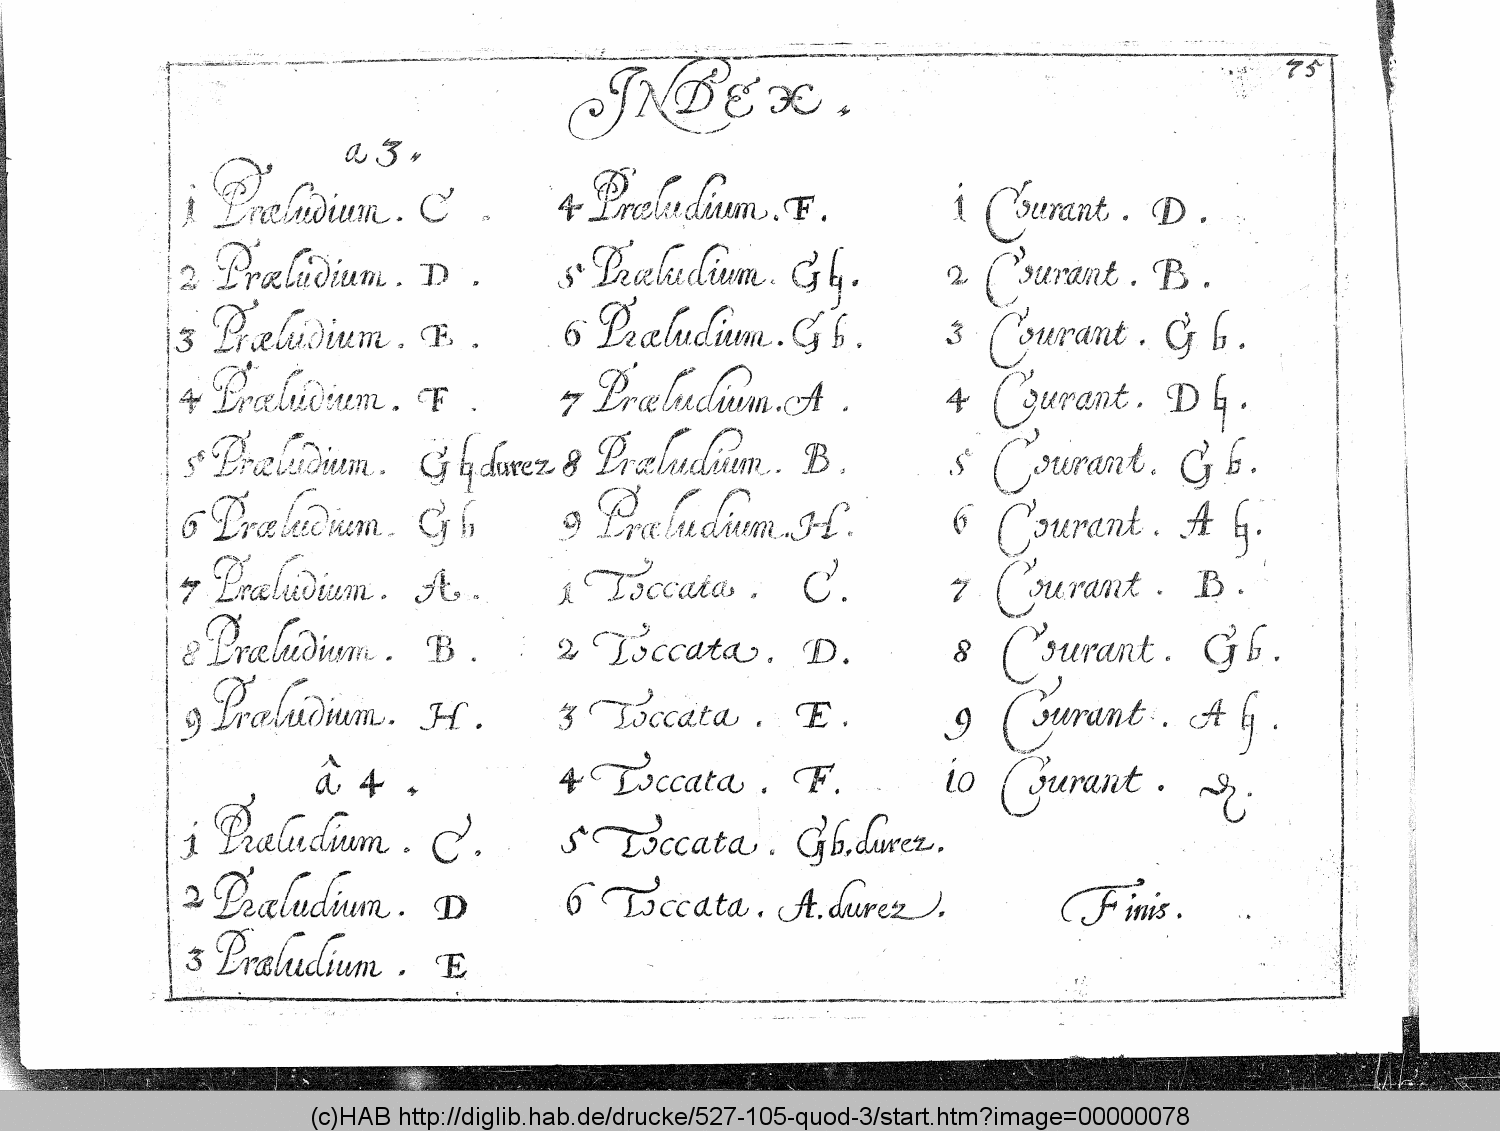 75
INDEX.
a 3.
1 Præludium. C.
2 Præludium. D.
3 Præludium. E.
4 Præludium. F.
5 Præludium. G ♮ durez
6 Præludium. G b
7 Præludium. A.
8 Præludium. B.
9 Præludium. H.
â 4.
1 Præludium. C.
2 Præludium. D
3 Præludium. E
4 Præludium. F.
5 Præludium. G ♮.
6 Præludium. G b.
7 Præludium. A.
8 Præludium. B.
9 Præludium. H.
1 Toccata. C.
2 Toccata. D.
3 Toccata. E.
4 Toccata. F.
5 Toccata. G b. durez.
6 Toccata. A. durez.
1 Courant. D.
2 Courant. B.
3 Courant. G b.
4 Courant. D ♮.
5 Courant. G b.
6 Courant. A ♮.
7 Courant. B.
8 Courant. G b.
9 Courant. A ♮.
10 Courant.
Finis.
(c)HAB http://diglib.hab.de/drucke/527-105-quod-3/start.htm?image=00000078